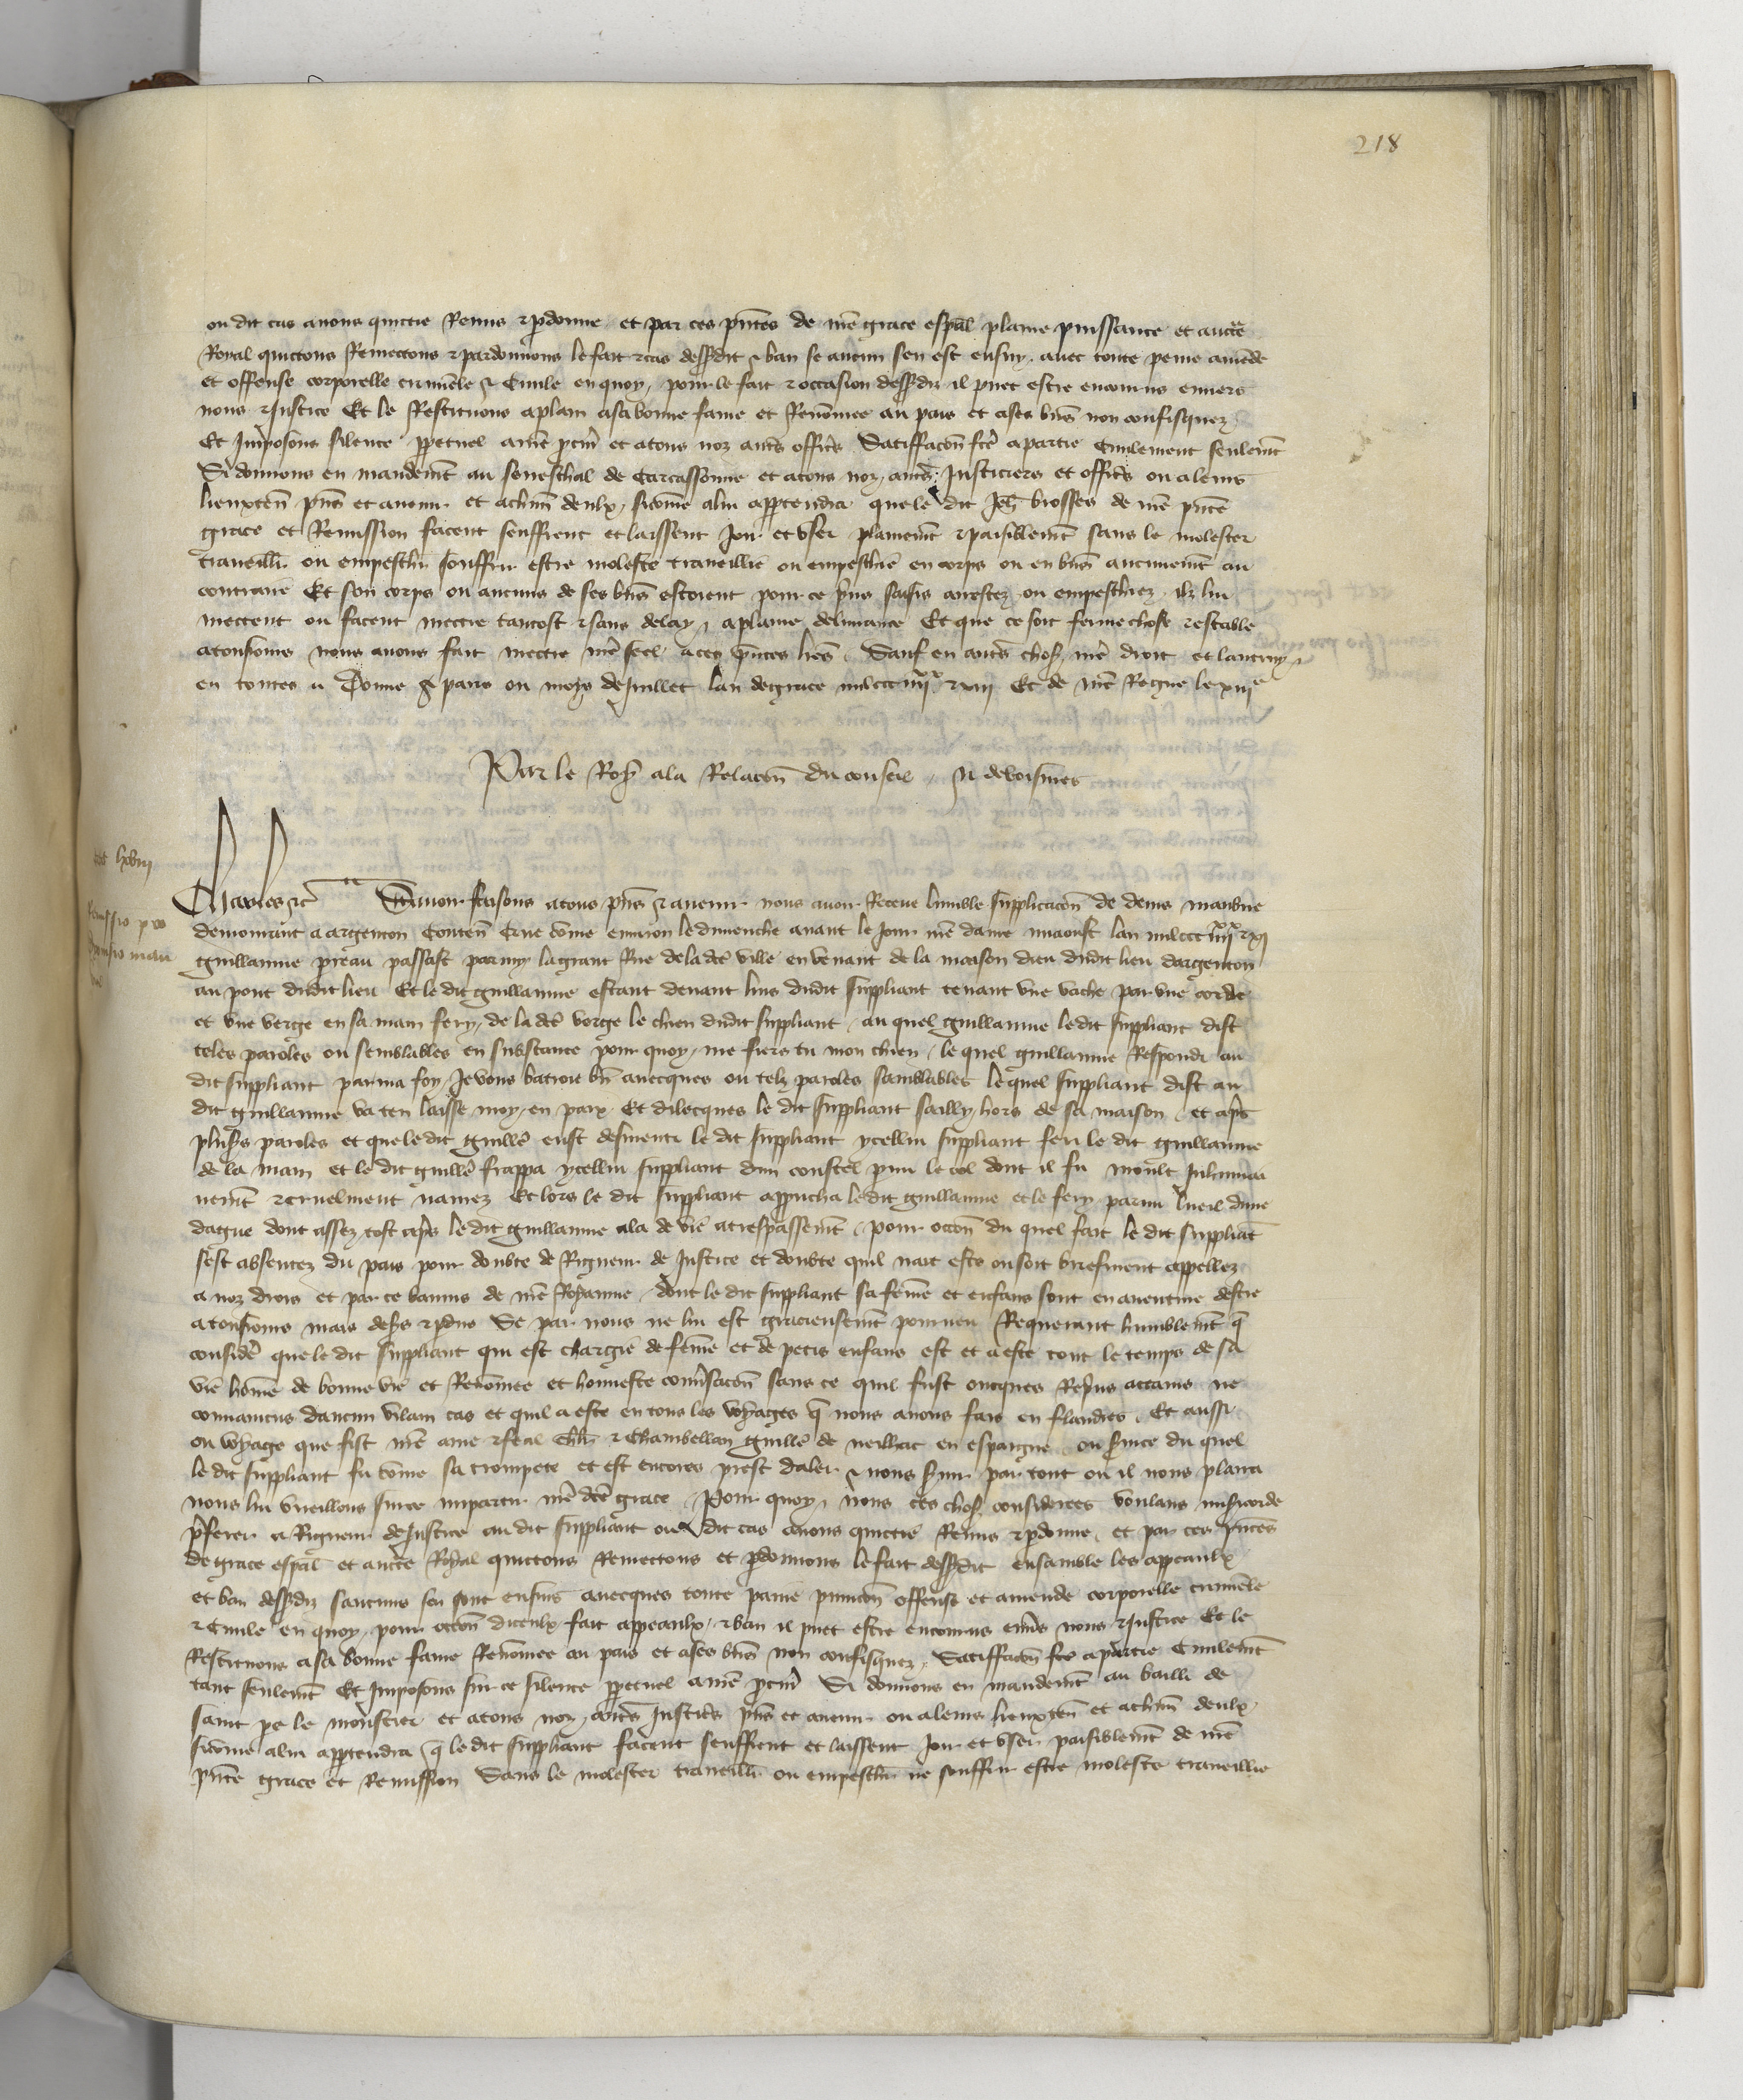 218
ou dit cas avons quictie Remis & pdonne et par ces pntes de nre grace espal plaine puissance et aucte
Royal quictons Remectons & pardonnons le fait & cas dessusdit & ban se aucun sen est ensuy avec toute peine amende
et offense corporelle criminele & Civile en quoy pour le fait & occasion dessusdiz il puet estre encouru envers
nous & Justice Et le Restituons aplain asa bonne fame et Renomee au pais et ases biens non confisquez
Et Imposons silence ppetuel anre pcur et atous noz autres offics Satiffacon fce apartie Civilement seulemt
Si donnons en mandemt au seneschal de Carcassonne et atous noz autres Justiciers et offics ou aleurs
lieuxten pns et avenir et achun deulx sicome alui appartendra que le dit Jeh brosses de nre pnte
grace et Remission facent seuffrent et laissent Joir et user plainemt & paisiblemt sans le molester
traveillr ou empeschr souffrir estre moleste traveillie ou empeschie en corps ou en biens aucunemt au
contraire Et son corps ou aucuns de ses biens estoient pour ce prins saisis arrestez ou empeschiez ilz lui
mectent ou facent mectre tantost & sans delay aplaine delivrance Et que ce soit ferme chose & estable
atousiours nous avons fait mectre nre seel aces pntes lres Sauf en autres choses nre droit et lautruy
en toutes Donne a paris ou moys de Juillet lan de grace mil ccc iiiixx & xiii Et de nre Regne le xiiie
Par le Roy ala Relacon du conseil N de voisines
Charles &c Savoir faisons atous pns & avenir nous avoir Receue lumble supplicacon de denis
demourant a argenton Conten Come environ le dimenche avant le Jour nre dame miaoust lan mil ccc iiiixx & xii
guillaume preau passast parmy la grant Rue de la dce ville en venant de la maison dieu dudit lieu dargenton
au pont dudit lieu Et le dit guillaume estant devant luis dudit suppliant tenant une vache par une corde
et une verge en sa main fery de la dce verge le chien dudit suppliant au quel guillaume le dit suppliant dist
teles paroles ou semblables en substance pour quoy me fiers tu mon chien le quel guillaume Respondi au
dit suppliant par ma foy Je vous batroie bn avecques ou telz paroles samblables le quel suppliant dist au
dit guillaume va ten laisse moy en paix Et dilecques le dit suppliant sailly hors de sa maison et apres
plusrs paroles et que le dit guille eust desmenti le dit suppliant ycellui suppliant feri le dit guillaume
de la main et le dit guille frappa ycellui suppliant dun coustel pmi le col dont il fu moult Inhumai
nemt & cruelment navrez Et lors le dit suppliant approucha le dit guillaume et le fery parmi lueil dune
dague dont assez tost apres le dit guillaume ala de vie a trespassemt pour occon du quel fait le dit suppliat
sest absentez du pais pour doubte de Rigueur de Justice et doubte quil nait este ou soit briefment appellez
a noz drois et par ce bannis de nre Royaume dont le dit suppliant sa feme et enfans sont en aventure destre
atousiours mais desers & pdus Se par nous ne lui est gracieusemt pourveu Requerant humblemt q
considere que le dit suppliant qui est chargie de feme et de petis enfans est et a este tout le temps de sa
vie home de bonne vie et Renomee et honneste conversacon sans ce quil fust oncques Reprins actains ne
convaincus daucun vilain cas et quil a este en tous les voyages q nous avons fais en flandres Et aussi
ou voyage que fist nre ame & feal chlr & Chambellan guille de neilhac en espaigne ou service du quel
le dit suppliant fu come sa trompete et est encores prest daler & nous servir par tout ou il nous plaira
nous lui vueillons sur ce impartir nre dce grace Pour quoy nous ces choses considerees voulans misericorde
preferer a Rigueur de Justice au dit suppliant ou dit cas avons quictie Remis & pdonne et par ces pntes
de grace espal et aucte Royal quictons Remectons et pdonnons le fait dessusdit ensamble les appeaulx
et ban dessusdiz saucuns sen sont ensuis avecques toute paine punicon offense et amende corporelle criminele
& Civile en quoy pour occon diceulx fait appeaulx & ban il puet estre encouru envers nous & Justice Et le
Restituons asa bonne fame Renomee au pais et ases biens non confisquez Satiffacon fce apartie Civilemt
tant seulemt Et Imposons sur ce silence ppetuel anre pcur Si donnons en mandemt au bailli de
saint pe le moustier et atous noz autres Justicrs pns et avenir ou aleurs lieuxten et achun deulx
sicome alui appartendra q le dit suppliant facent seuffrent et laissent Joir et user paisiblemt de nre
pnte grace et Remission Sans le molester traveillr ou empeschr ne souffrir estre moleste traveillie